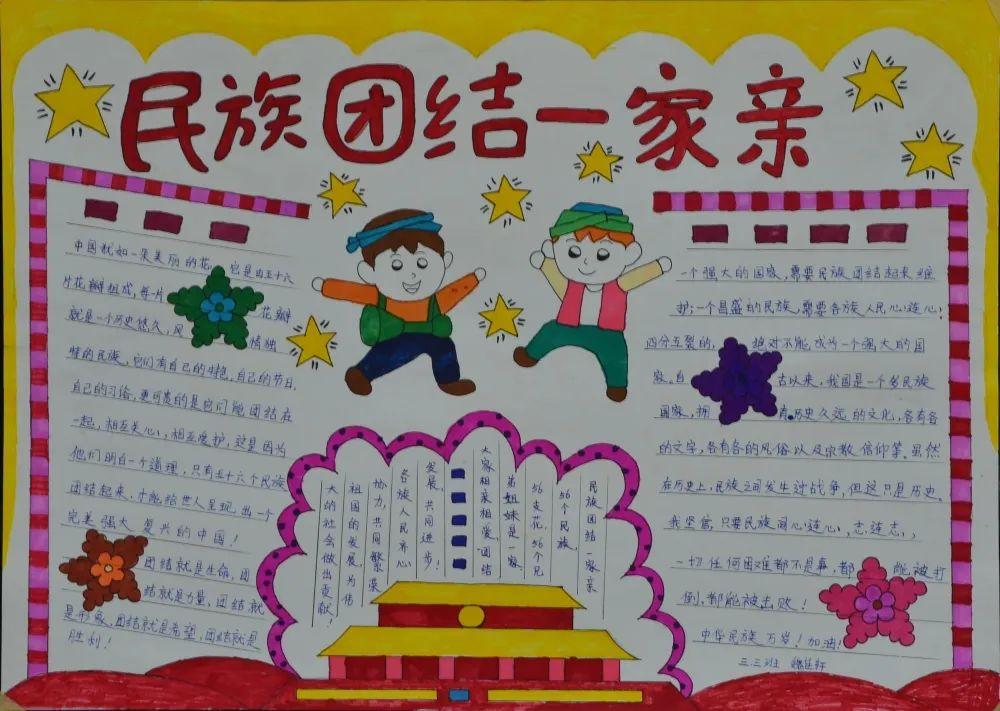 民族团结一家亲
中国就如一朵美丽的花，它是由五十六
片花瓣组成，每一片花瓣
就是一个历史悠久，风情独
特的民族，它们有自己的特色，自己的节日，
自己的习俗，更可贵的是它们能团结在
一起，相互关心，相互爱护，这是因为
他们明白一个道理，只有五十六个民族
团结起来，才能给世人呈现出一个
完美强大复兴的中国！
团结就是生命，团
结就是力量，团结就
是形象，团结就是希望，团结就是
胜利！
民族团结一家亲
56个民族，
56支花，56个兄
弟姐妹是一家，
大家相亲相爱，团结
发展，共同进步！
各族人民齐心
协力，共同繁荣
祖国的发展，为伟
大的社会做出贡献！
一个强大的国家，需要民族团结起来维
护；一个昌盛的民族，需要各族人民心心连心；
四分五裂的，绝对不能成为一个强大的国
家。自古以来，我国是一个多民族
国家，拥有历史久远的文化，各有各
的文字，各有各的风俗以及宗教信仰等。虽然
在历史上，民族之间发生过战争，但这只是历史。
我坚信，只要民族同心连心，志连志，
一切任何困难都不是事，都能被打
倒，都能被击败！
中华民族万岁！加油！
三.三班